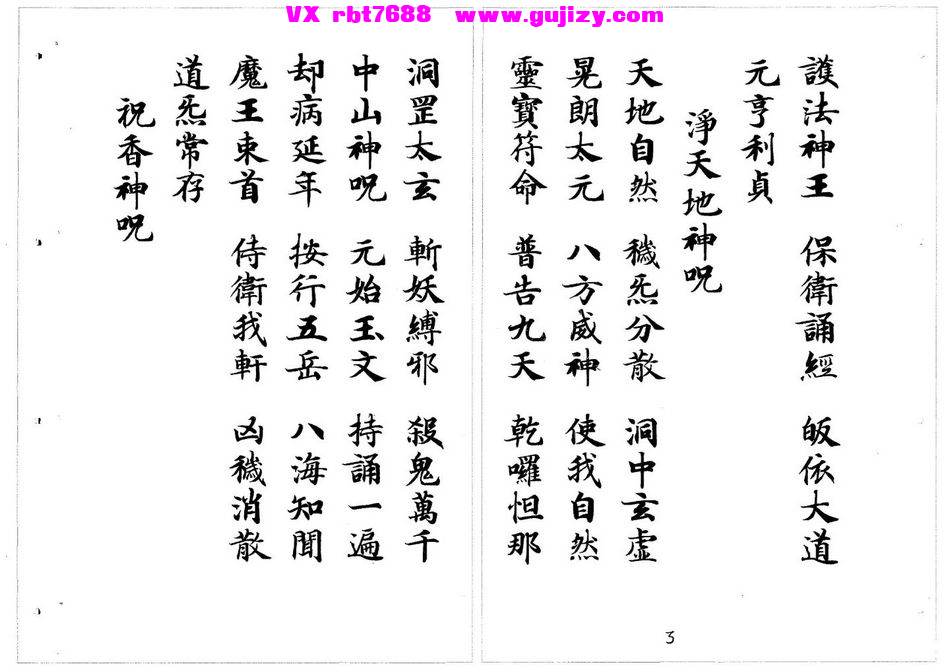 VX rbt7688 www.gujizy.com
護法神王 保衛誦經 皈依大道
元亨利貞
淨天地神呪
天地自然 穢炁分散 洞中玄虛
晃朗太元 八方威神 使我自然
靈寶符命 普告九天 乾囉怛那
洞罡太玄 斬妖縛邪 殺鬼萬千
中山神呪 元始玉文 持誦一遍
却病延年 按行五岳 八海知聞
魔王束首 侍衛我軒 凶穢消散
道炁常存
祝香神呪
3